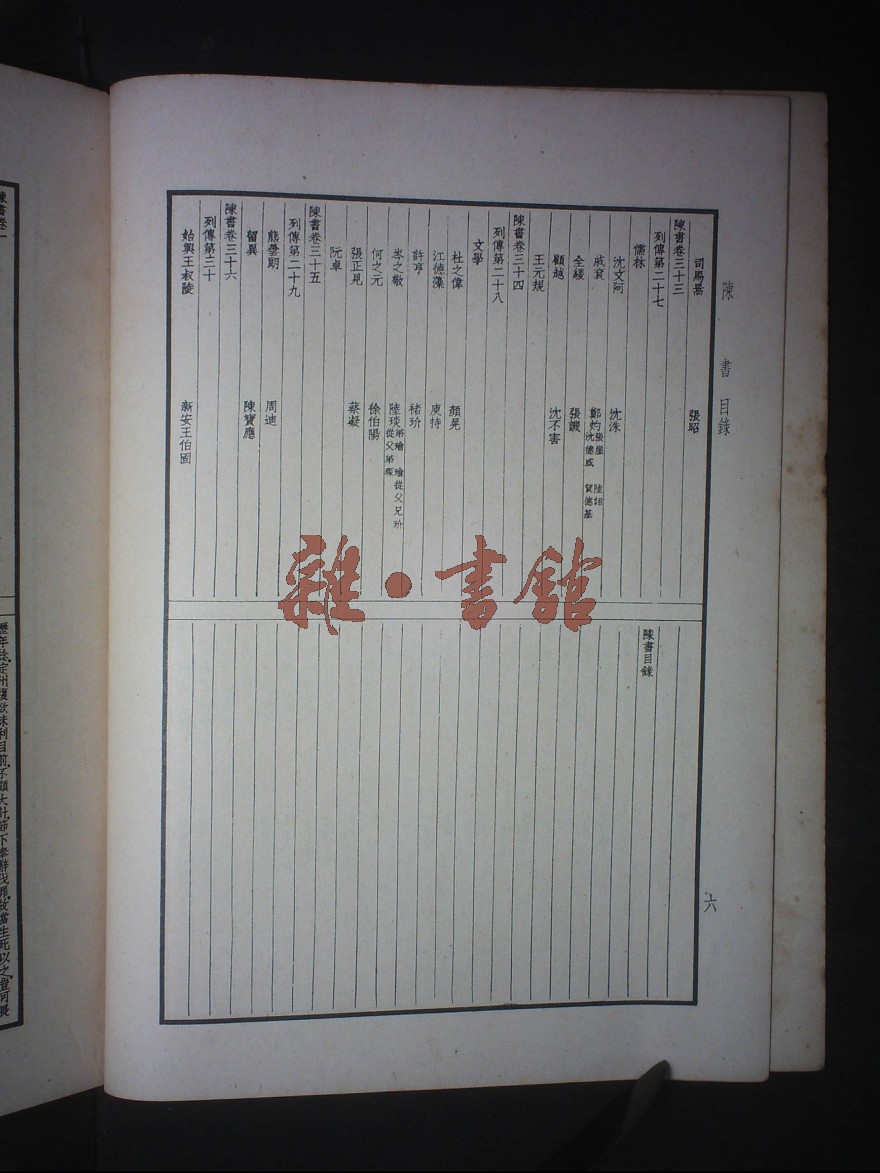 陳書目錄
司馬暠　張昭
陳書卷三十三
列傳第二十七
儒林
沈文阿　沈洙
戚袞　鄭灼張崖　陸詡　沈德威　賀德基
全緩　張譏
顧越　沈不害
王元規
陳書卷三十四
列傳第二十八
文學
杜之偉　顏晃
江德藻　庾持
許亨　褚玠
岑之敬　陸琰弟瑜　瑜從父兄玠　從父弟琛
何之元　徐伯陽
張正見　蔡凝
阮卓
陳書卷三十五
列傳第二十九
熊曇朗　周迪
留異　陳寶應
陳書卷三十六
列傳第三十
始興王叔陵　新安王伯固
陳書目錄
六
雜·書館
陳書卷一